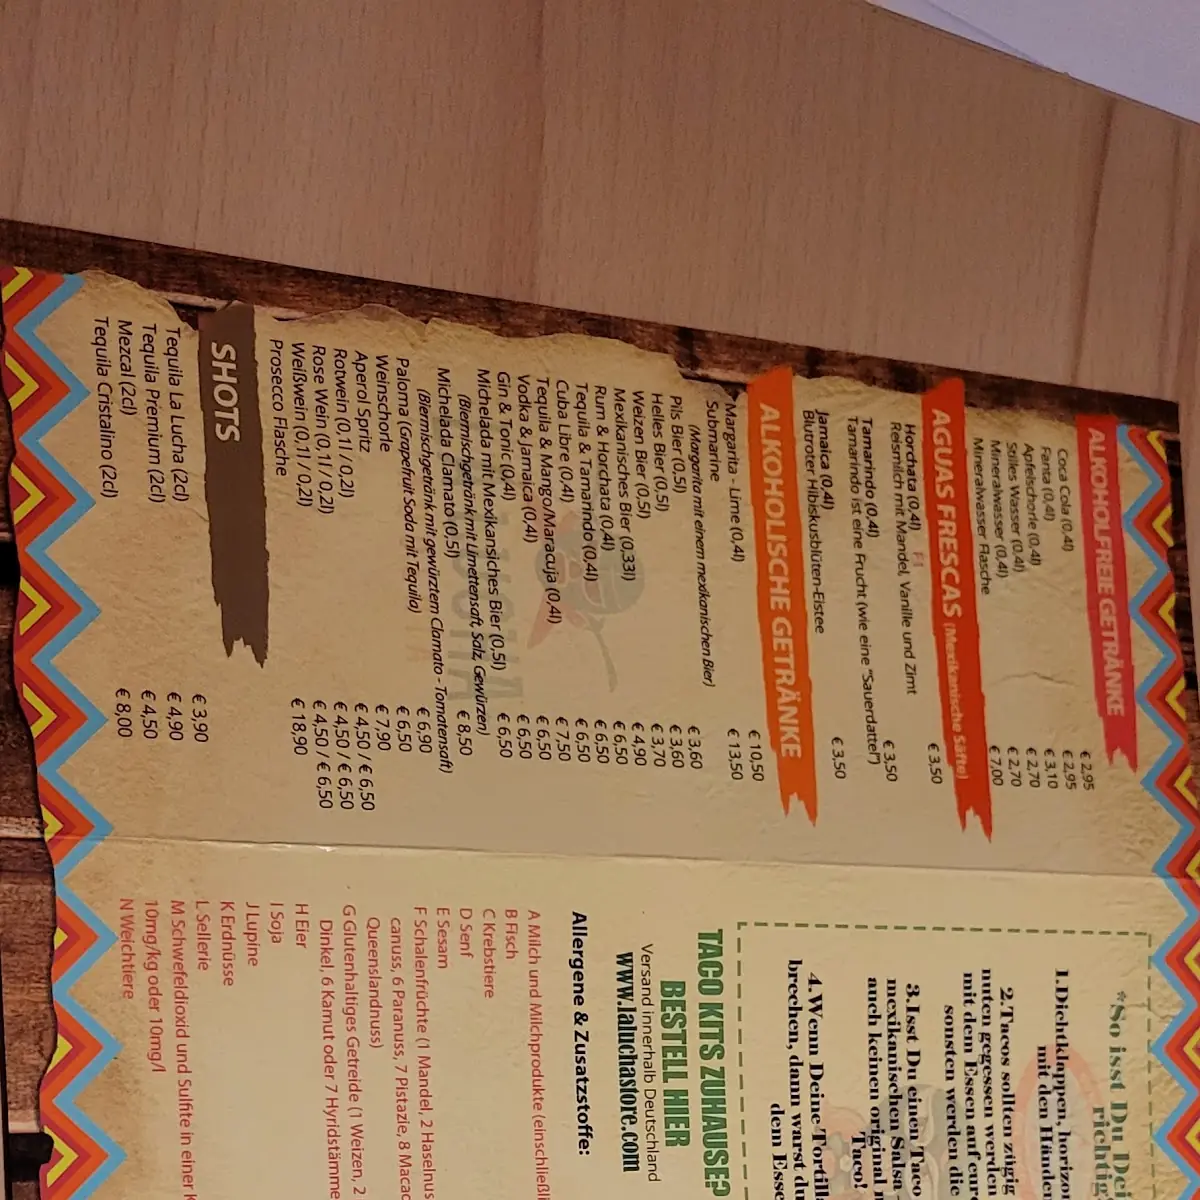 ALKOHOLFREIE GETRÄNKE
Coca Cola (0,4l) € 2,95
Fanta (0,4l) € 2,95
Apfelschorle (0,4l) € 3,10
Stilles Wasser (0,4l) € 2,70
Mineralwasser (0,4l) € 2,70
Mineralwasser Flasche € 7,00
AGUAS FRESCAS (Mexikanische Säfte)
Horchata (0,4l) F1 € 3,50
Reismilch mit Mandel, Vanille und Zimt
Tamarindo (0,4l) € 3,50
Tamarindo ist eine Frucht (wie eine "Sauerdattel")
Jamaica (0,4l) € 3,50
Blutroter Hibiskusblüten-Eistee
ALKOHOLISCHE GETRÄNKE
Margarita - Lime (0,4l) € 10,50
Submarine € 13,50
(Margarita mit einem mexikanischen Bier)
Pils Bier (0,5l) € 3,60
Helles Bier (0,5l) € 3,60
Weizen Bier (0,5l) € 3,70
Mexikanisches Bier (0,33l) € 4,90
Rum & Horchata (0,4l) € 6,50
Tequila & Tamarindo (0,4l) € 6,50
Cuba Libre (0,4l) € 6,50
Tequila & Mango/Maracuja (0,4l) € 7,50
Vodka & Jamaica (0,4l) € 6,50
Gin & Tonic (0,4l) € 6,50
Michelada mit Mexikansiches Bier (0,5l) € 6,50
(Biermischgetränk mit Limettensaft, Salz, Gewürzen)
Michelada Clamato (0,5l) € 8,50
(Biermischgetränk mit gewürztem Clamato - Tomatensaft)
Paloma (Grapefruit Soda mit Tequila) € 6,90
Weinschorle € 6,50
Aperol Spritz € 7,90
Rotwein (0,1l / 0,2l) € 4,50 / € 6,50
Rose Wein (0,1l / 0,2l) € 4,50 / € 6,50
Weißwein (0,1l / 0,2l) € 4,50 / € 6,50
Prosecco Flasche € 18,90
SHOTS
Tequila La Lucha (2cl) € 3,90
Tequila Premium (2cl) € 4,90
Mezcal (2cl) € 4,50
Tequila Cristalino (2cl) € 8,00
*So isst Du De
richtig
1.Dichtklappen, horizo
mit den Hände
2.Tacos sollten zügig
nuten gegessen werde
mit dem Essen auf eur
sonsten werden die
3.Isst Du einen Taco
mexikanischen Salsa
auch keinen original
Taco!
4.Wenn Deine Tortill
brechen, dann warst du
dem Esse
TACO KITS ZUHAUSE?
BESTELL HIER
Versand innerhalb Deutschland
www.laluchastore.com
Allergene & Zusatzstoffe:
A Milch und Milchprodukte (einschließl
B Fisch
C Krebstiere
D Senf
E Sesam
F Schalenfrüchte (1 Mandel, 2 Haselnus
canuss, 6 Paranuss, 7 Pistazie, 8 Macac
Queenslandnuss)
G Glutenhaltiges Getreide (1 Weizen, 2
Dinkel, 6 Kamut oder 7 Hyridstämme
H Eier
I Soja
J Lupine
K Erdnüsse
L Sellerie
M Schwefeldioxid und Sulfite in einer K
10mg/kg oder 10mg/l
N Weichtiere